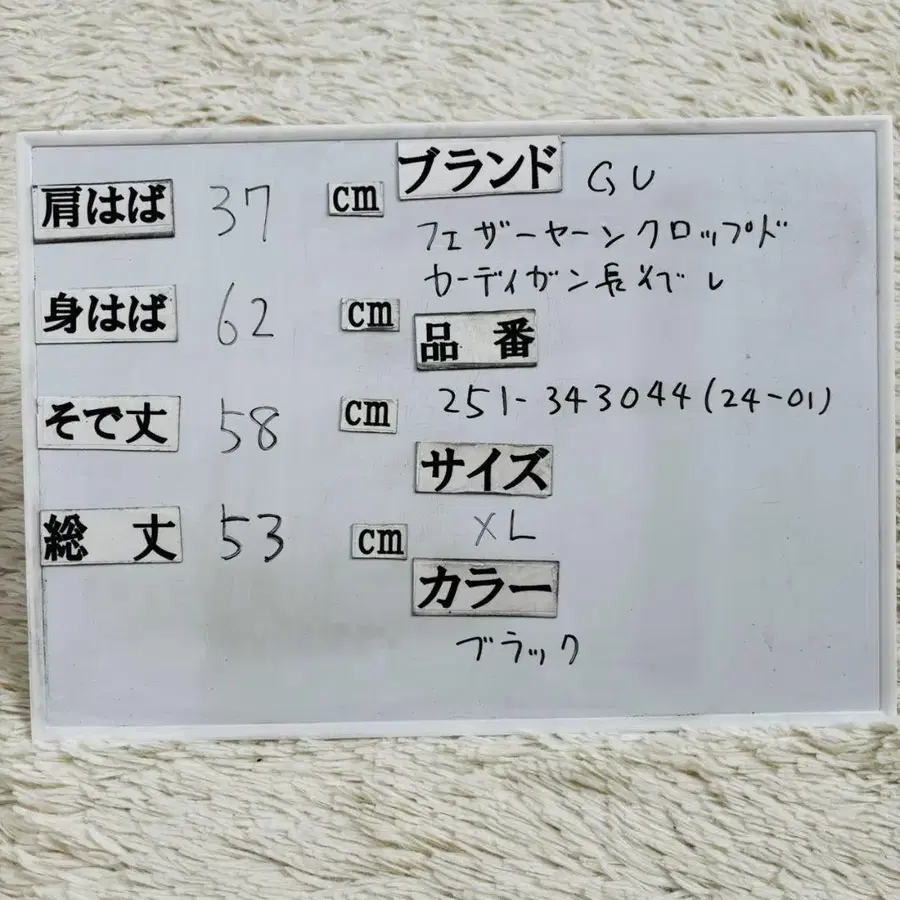 肩はば 37 cm
身はば 62 cm
そで丈 58 cm
総 丈 53 cm
ブランド GU
フェザーヤーンクロップド
カーディガン長そでし
品 番
251-343044(24-01)
サイズ
XL
カラー
ブラック